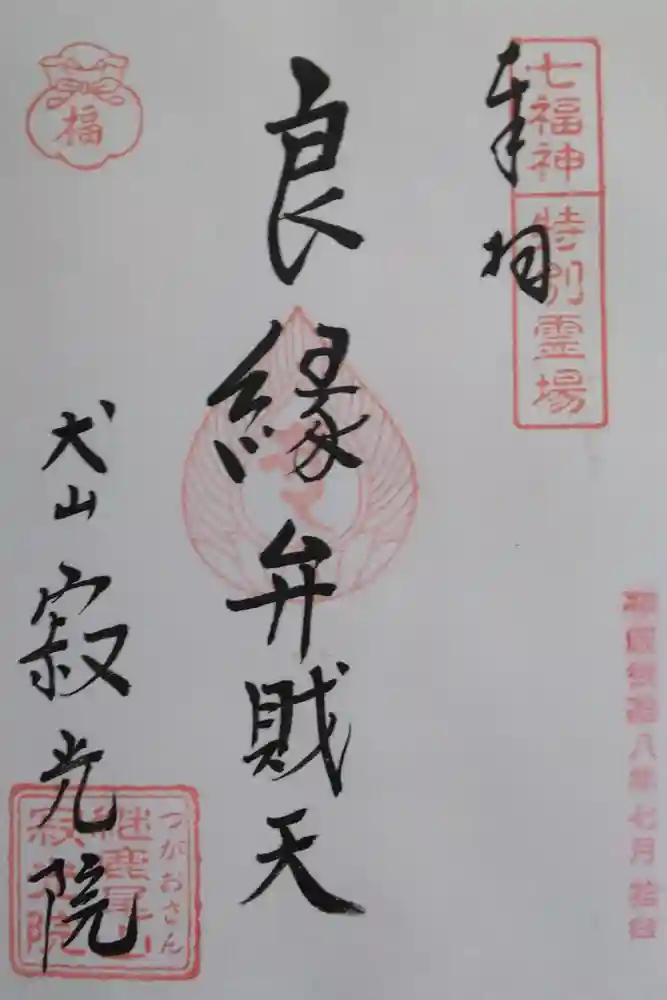 七福神
特別霊場
奉拝
八年七月
良縁弁財天
福
犬山 寂光院
つがおさん
継鹿尾山
寂光院